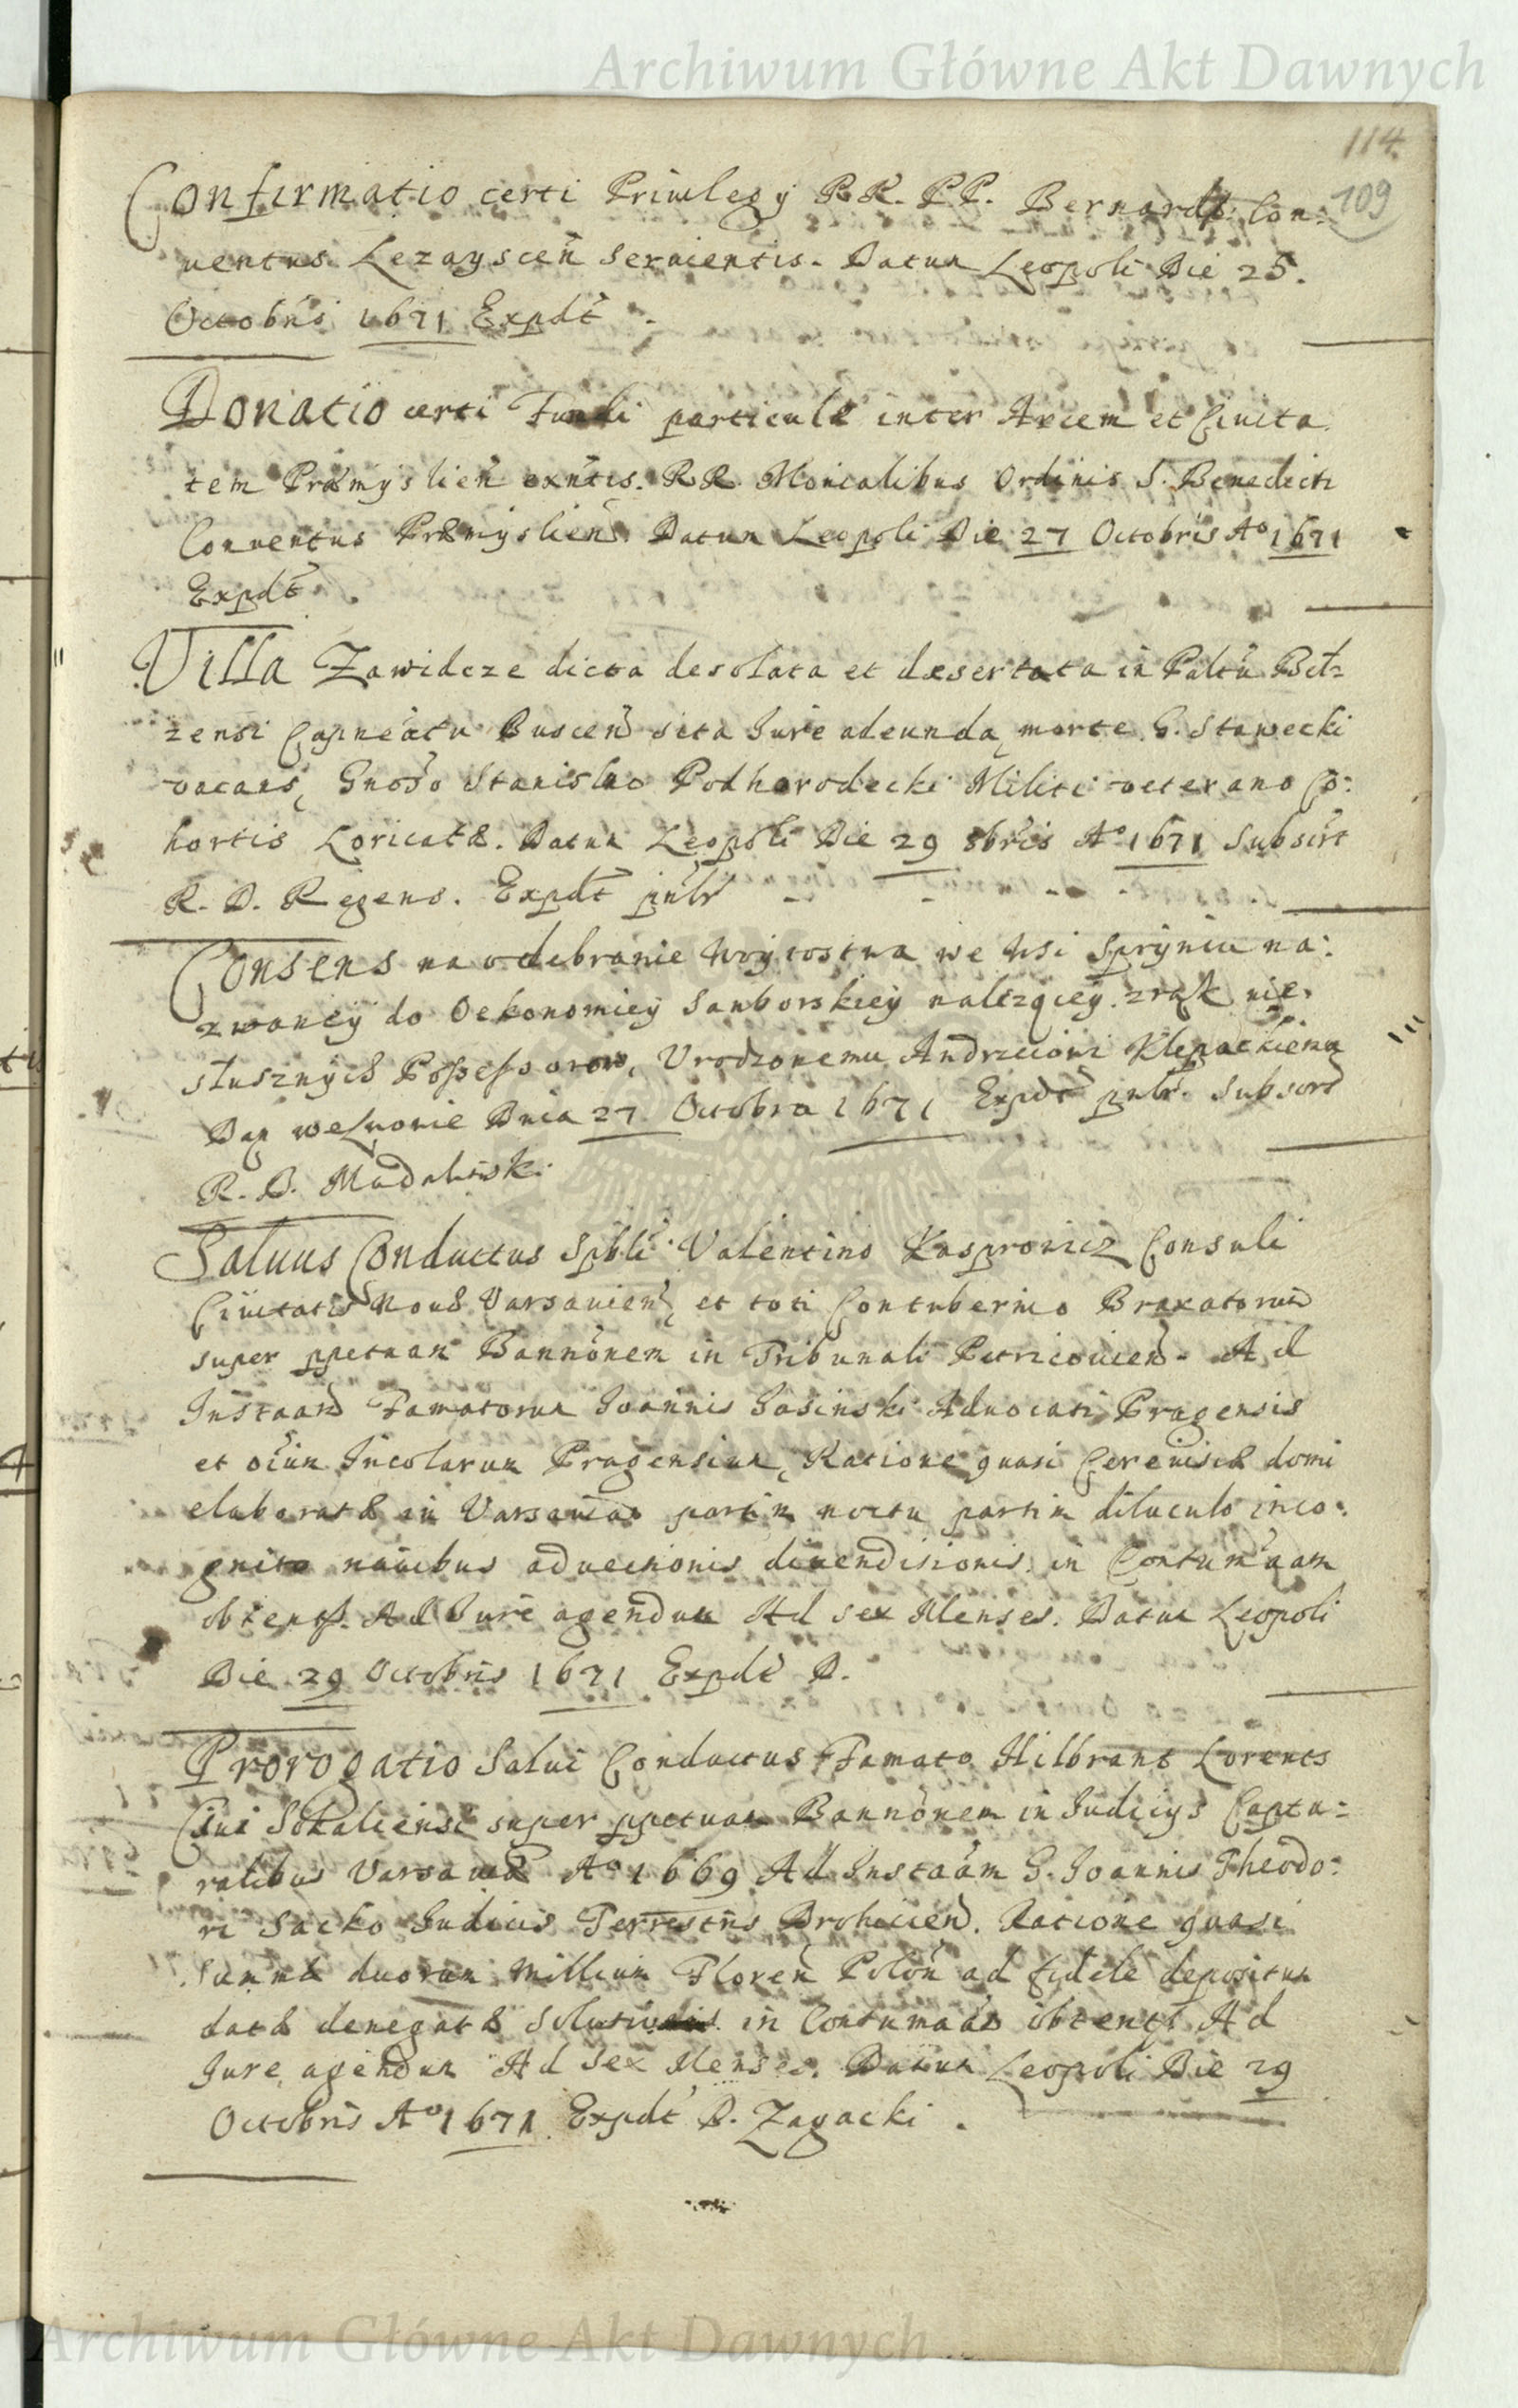 Archiwum Główne Akt Dawnych
114
109
Confirmatio certi Priuilegy RR. PP. Bernard: Con:
uentus Lezayscen seruientis. Datum Leopoli Die 25.
Octobris 1671 Expdt.
Donatio certi Fundi particulæ inter Arcem et Ciuita
tem Præmyslien exntis. RR. Monialibus Ordinis S. Benedicti
Conuentus Præmyslien. Datum Leopoli Die 27 Octobris Ao 1671
Expdt.
Villa Zawidcze dicta desolata et desertata in Paltu Bel=
zensi Capneatu Buscen sita Iure adeunda, morte G. Stawecki
vacans, Gnoso Stanislao Podhorodecki Militi veterano Co:
hortis Loricatæ. Datum Leopoli Die 29 8bris Ao 1671 Subscrt
R. D. Regens. Expdt pnbr
Consens na odebranie Woytostwa we Wsi Spryniu na:
zwaney do Oekonomiey Samborskiey nalezącey z rąk nie,
słusznych Possessorow, Vrodzonemu Andrzeiowi Klepackiemu
Dan we Lwowie Dnia 27 Octobra 1671 Expdt pnbr. Subscrt
R. D. Madalinski
Saluus Conductus Spbli Valentino Kasprowicz Consuli
Ciuitatis Nouæ Varsauien, et toti Contubernio Braxatorum
super ppetuam Bannonem in Tribunali Petricouien. Ad
Instaan Famatorum Ioannis Iasinski Aduocati Pragensis
et oium Incolarum Pragensium, Ratione quasi Cereuisiæ domi
elaboratæ in Varsauiam partim noctu partim diluculo inco:
gnito nauibus aduectionis diuendisionis in Contumaam
obtent. Ad Iure agendum Ad sex Menses. Datum Leopoli
Die 29 Octobris 1671 Expdt D.
Prorogatio Salui Conductus Famato Hilbrant Lorents
Ciui Sokaliensi super ppetuam Bannonem in Iudicys Captu=
ralibus Varsauiæ Ao 1669 Ad Instaam G. Ioannis Theodo:
ri Sacko Iudicis Terrestris Drohicien. Ratione quasi
Summæ duorum Millium Floren Polon ad fidele depositum
datæ denegatæ Solutionis in Contumaam obtent. Ad
Iure agendum Ad Sex Menses. Datum Leopoli Die 29
Octobris Ao 1671 Expdt D. Zagacki.
Archiwum Główne Akt Dawnych